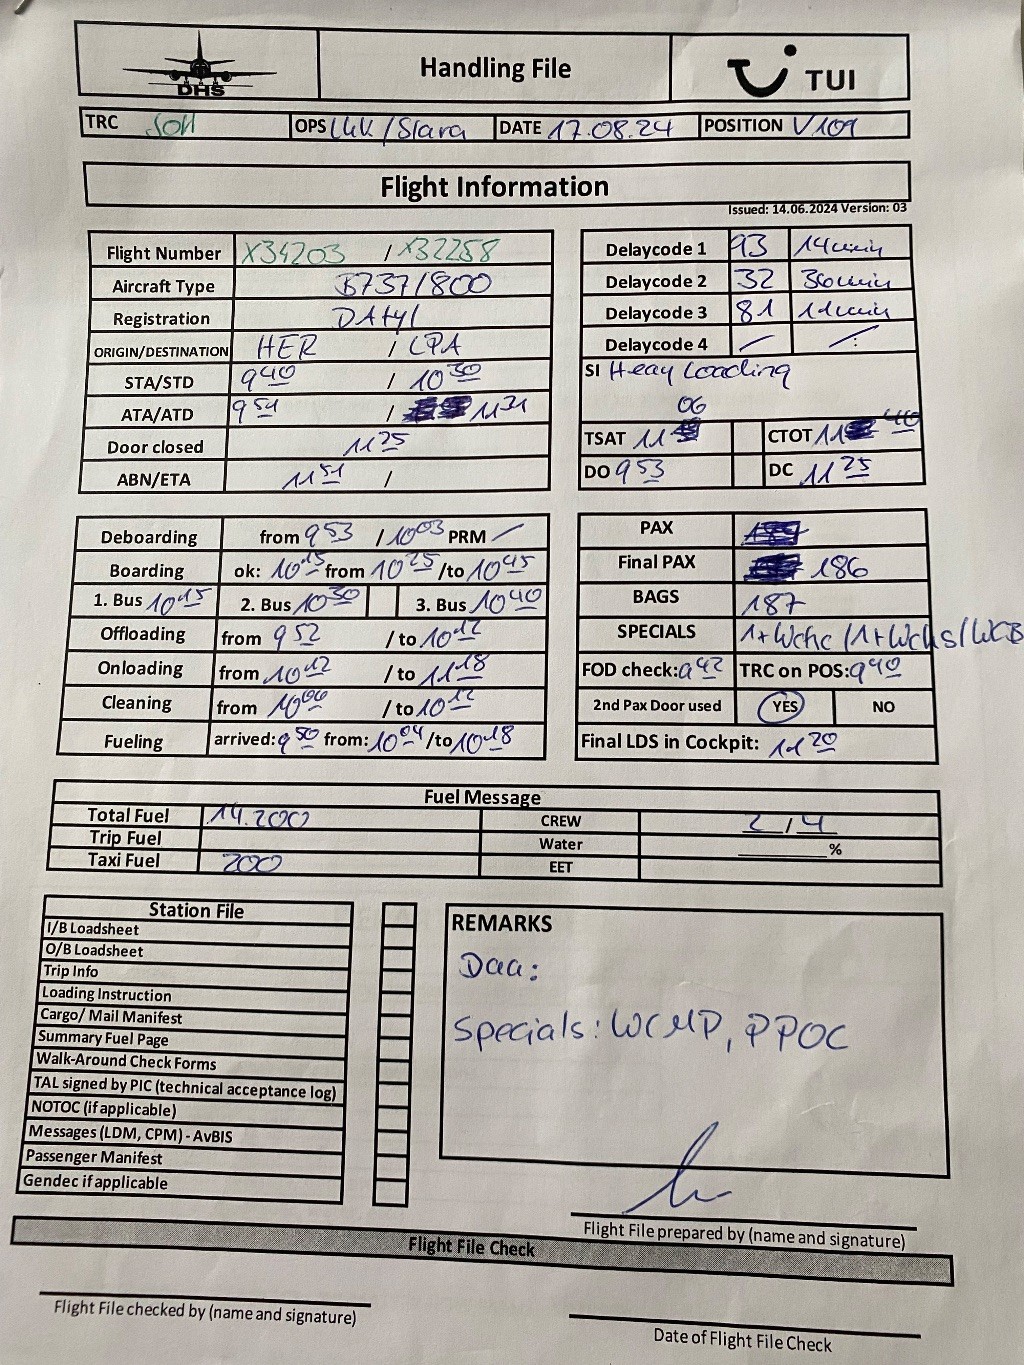 DHS
Handling File
TUI
TRC SOH OPS LUK / Slara DATE 17.08.24 POSITION V109
Flight Information
Issued: 14.06.2024 Version: 03
Flight Number X34203 / X32258
Aircraft Type B737/800
Registration DAtyl
ORIGIN/DESTINATION HER / LPA
STA/STD 9 40 / 10 30
ATA/ATD 9 51 / 11 31
Door closed 11 25
ABN/ETA 11 51 /
Delaycode 1 93 14min
Delaycode 2 32 36min
Delaycode 3 81 11min
Delaycode 4 / /
SI Heay Loading
TSAT 11 06 CTOT 11 40
DO 9 53 DC 11 25
Deboarding from 9 53 / 10 03 PRM /
Boarding ok: 10 15 from 10 25 /to 10 45
1. Bus 10 15 2. Bus 10 30 3. Bus 10 40
Offloading from 9 52 / to 10 12
Onloading from 10 12 / to 11 18
Cleaning from 10 06 / to 10 12
Fueling arrived: 9 50 from: 10 04 /to 10 18
PAX
Final PAX 186
BAGS 187
SPECIALS 1+Wchc /1+Wchs/WCB
FOD check: 9 42 TRC on POS: 9 40
2nd Pax Door used YES NO
Final LDS in Cockpit: 11 20
Fuel Message
Total Fuel 14.200 CREW 2 / 4
Trip Fuel Water %
Taxi Fuel 200 EET
Station File
I/B Loadsheet
O/B Loadsheet
Trip Info
Loading Instruction
Cargo/ Mail Manifest
Summary Fuel Page
Walk-Around Check Forms
TAL signed by PIC (technical acceptance log)
NOTOC (if applicable)
Messages (LDM, CPM) - AvBIS
Passenger Manifest
Gendec if applicable
REMARKS
Daa:
Specials: WCMP, PPOC
Flight File prepared by (name and signature)
Flight File Check
Flight File checked by (name and signature)
Date of Flight File Check